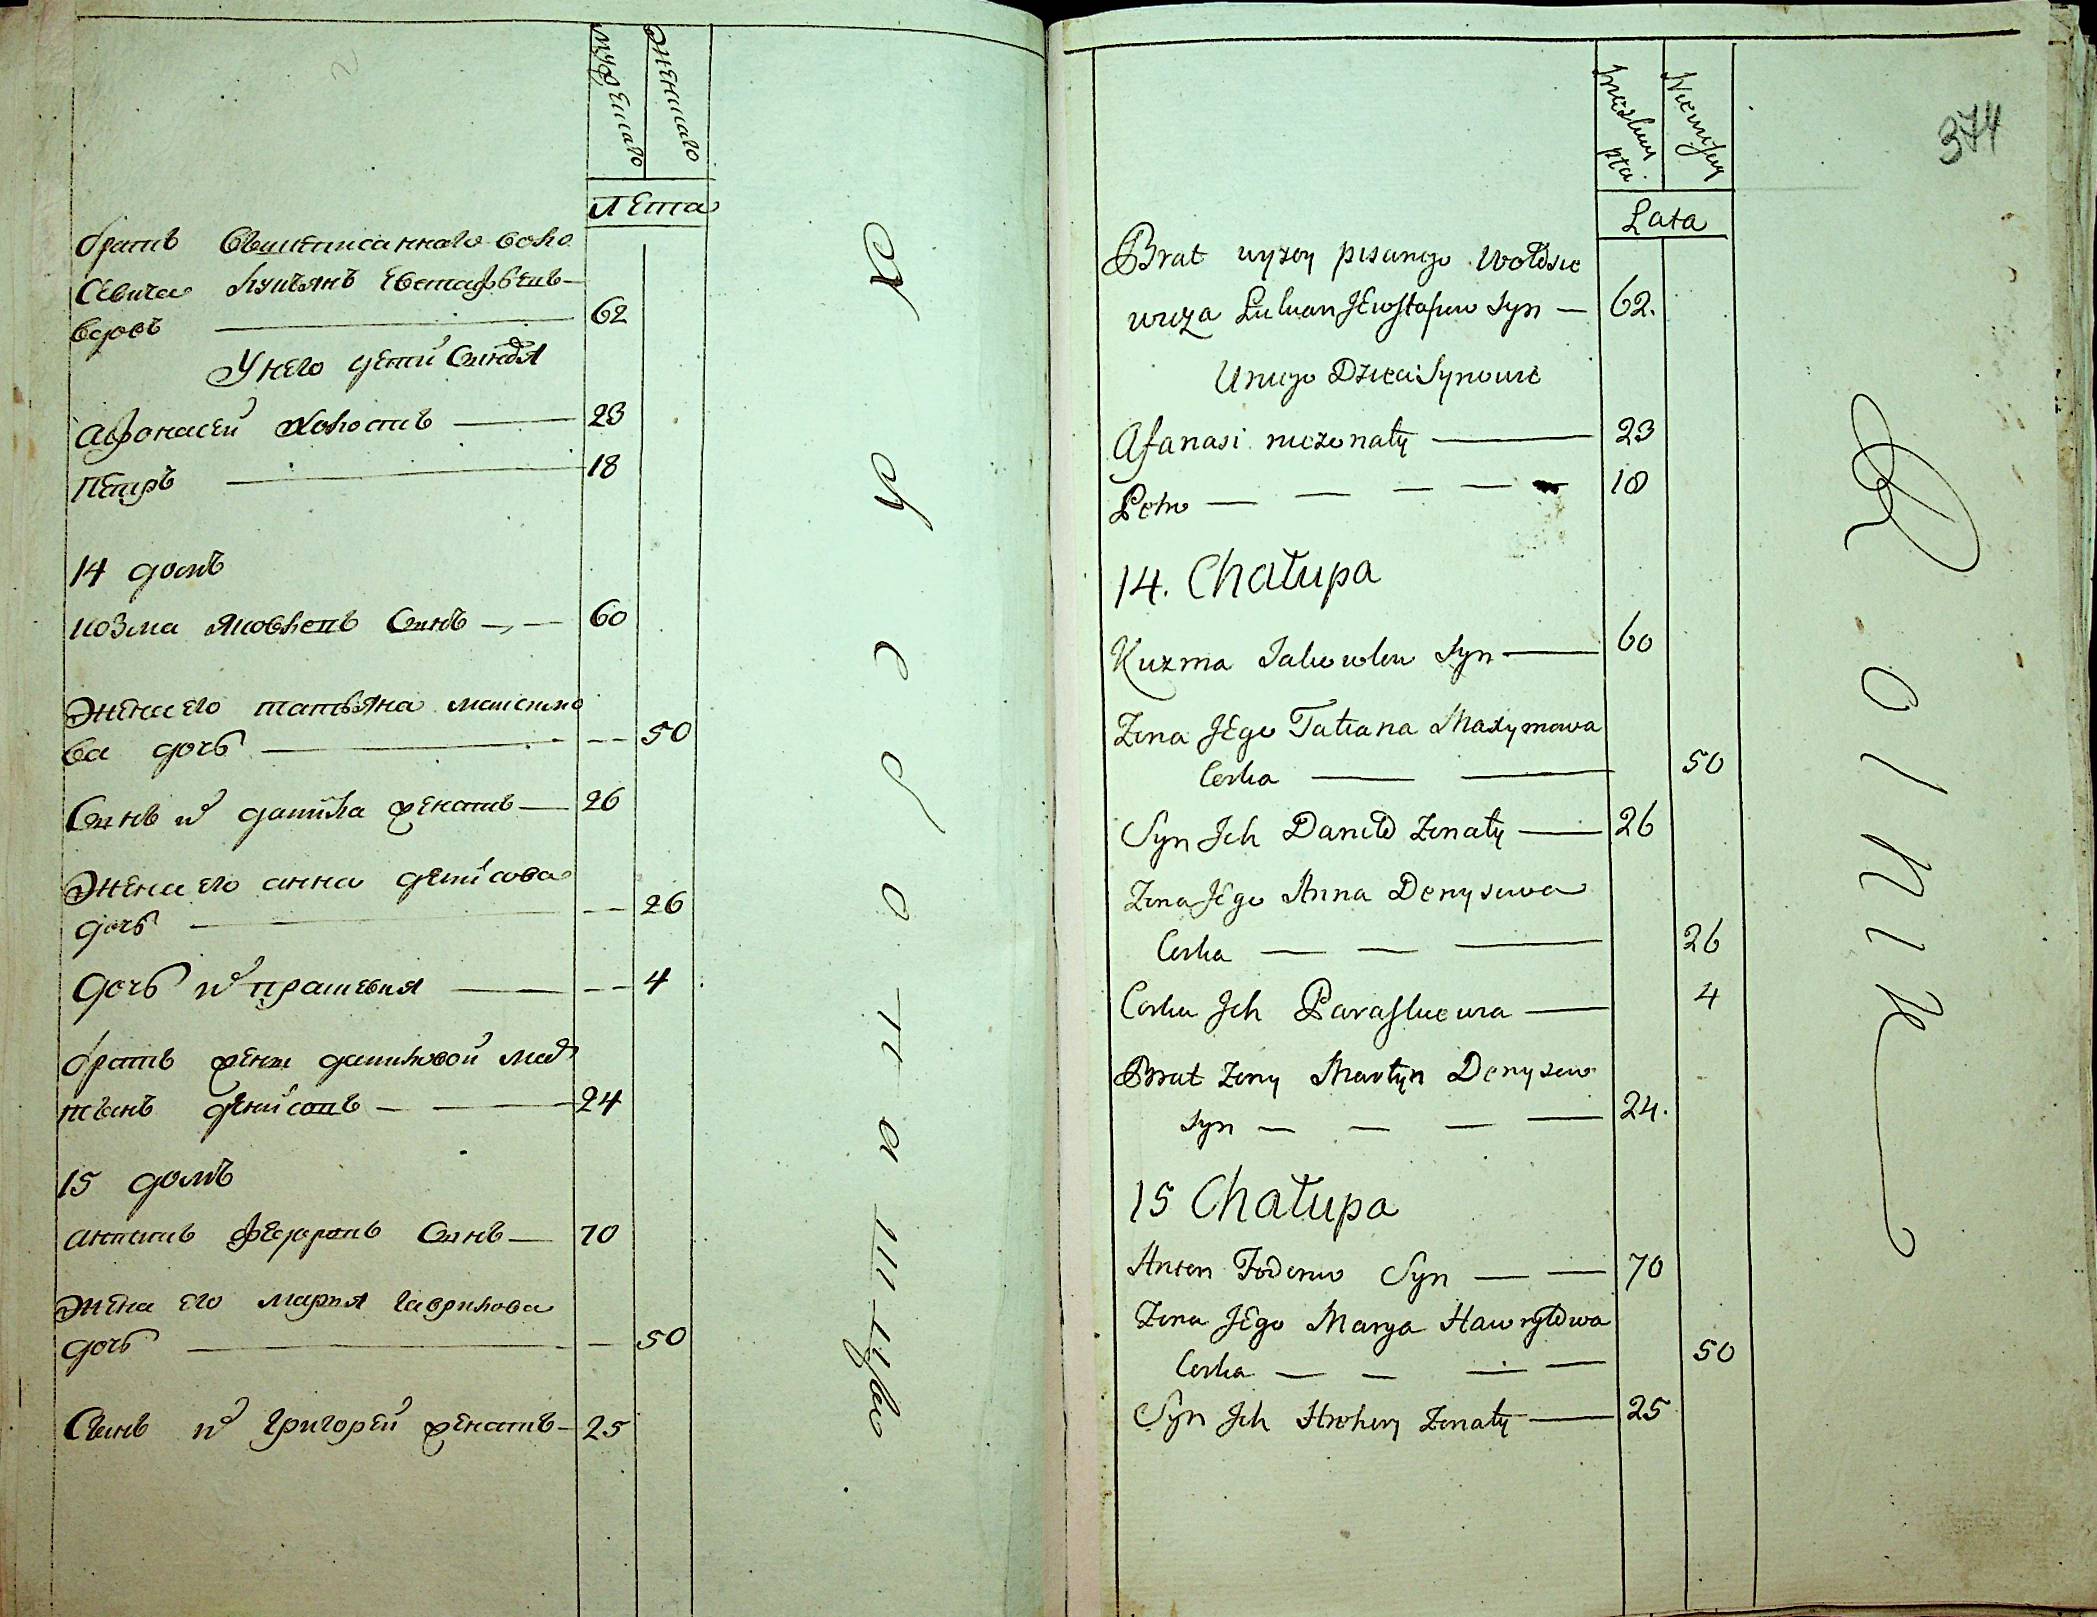 мужеска
женска
Лета
братъ вышеписанного воло
севича лукьянъ евстафьевъ
62
У него дети синовя
афонасей холостъ 23
петръ 18
14 домъ
козма яковлевъ синъ 60
жена его татьяна максимо
ва дочь 50
Синъ и данила женатъ 26
жена его анна денисова
дочь 26
дочь и прасковия 4
братъ жени даниловой мар
тинъ денисовъ 24
15 домъ
антонъ федоровъ синъ 70
жена его мария гаврилова
дочь 50
Синъ и григорей женатъ 25
374
Męzkiey
płci
Niewiesciey
Lata
Brat wyzey pisanego Wołosie
wicza Łukian JEwstafiew Syn — 62.
Uniego Dzieci Synowie
Afanasi niezonaty — 23
Petro — — — — — 18
14. Chałupa
Kuzma Jakowlew Syn — 60
Zona JEgo Tatiana Maxymowa
Corka — — 50
Syn Jch Daniło Zonaty — 26
Zona JEgo Anna Denysowa
Corka — — — 26
Corka Jch Paraskiewia — 4
Brat Zony Martyn Denysow
Syn — — — — 24.
15 Chałupa
Anton Fodorow Syn — — 70
Zona JEgo Marya Hawryłowa
Corka — — — — 50
Syn Jch Hrehory Zonaty — 25
Rolnik